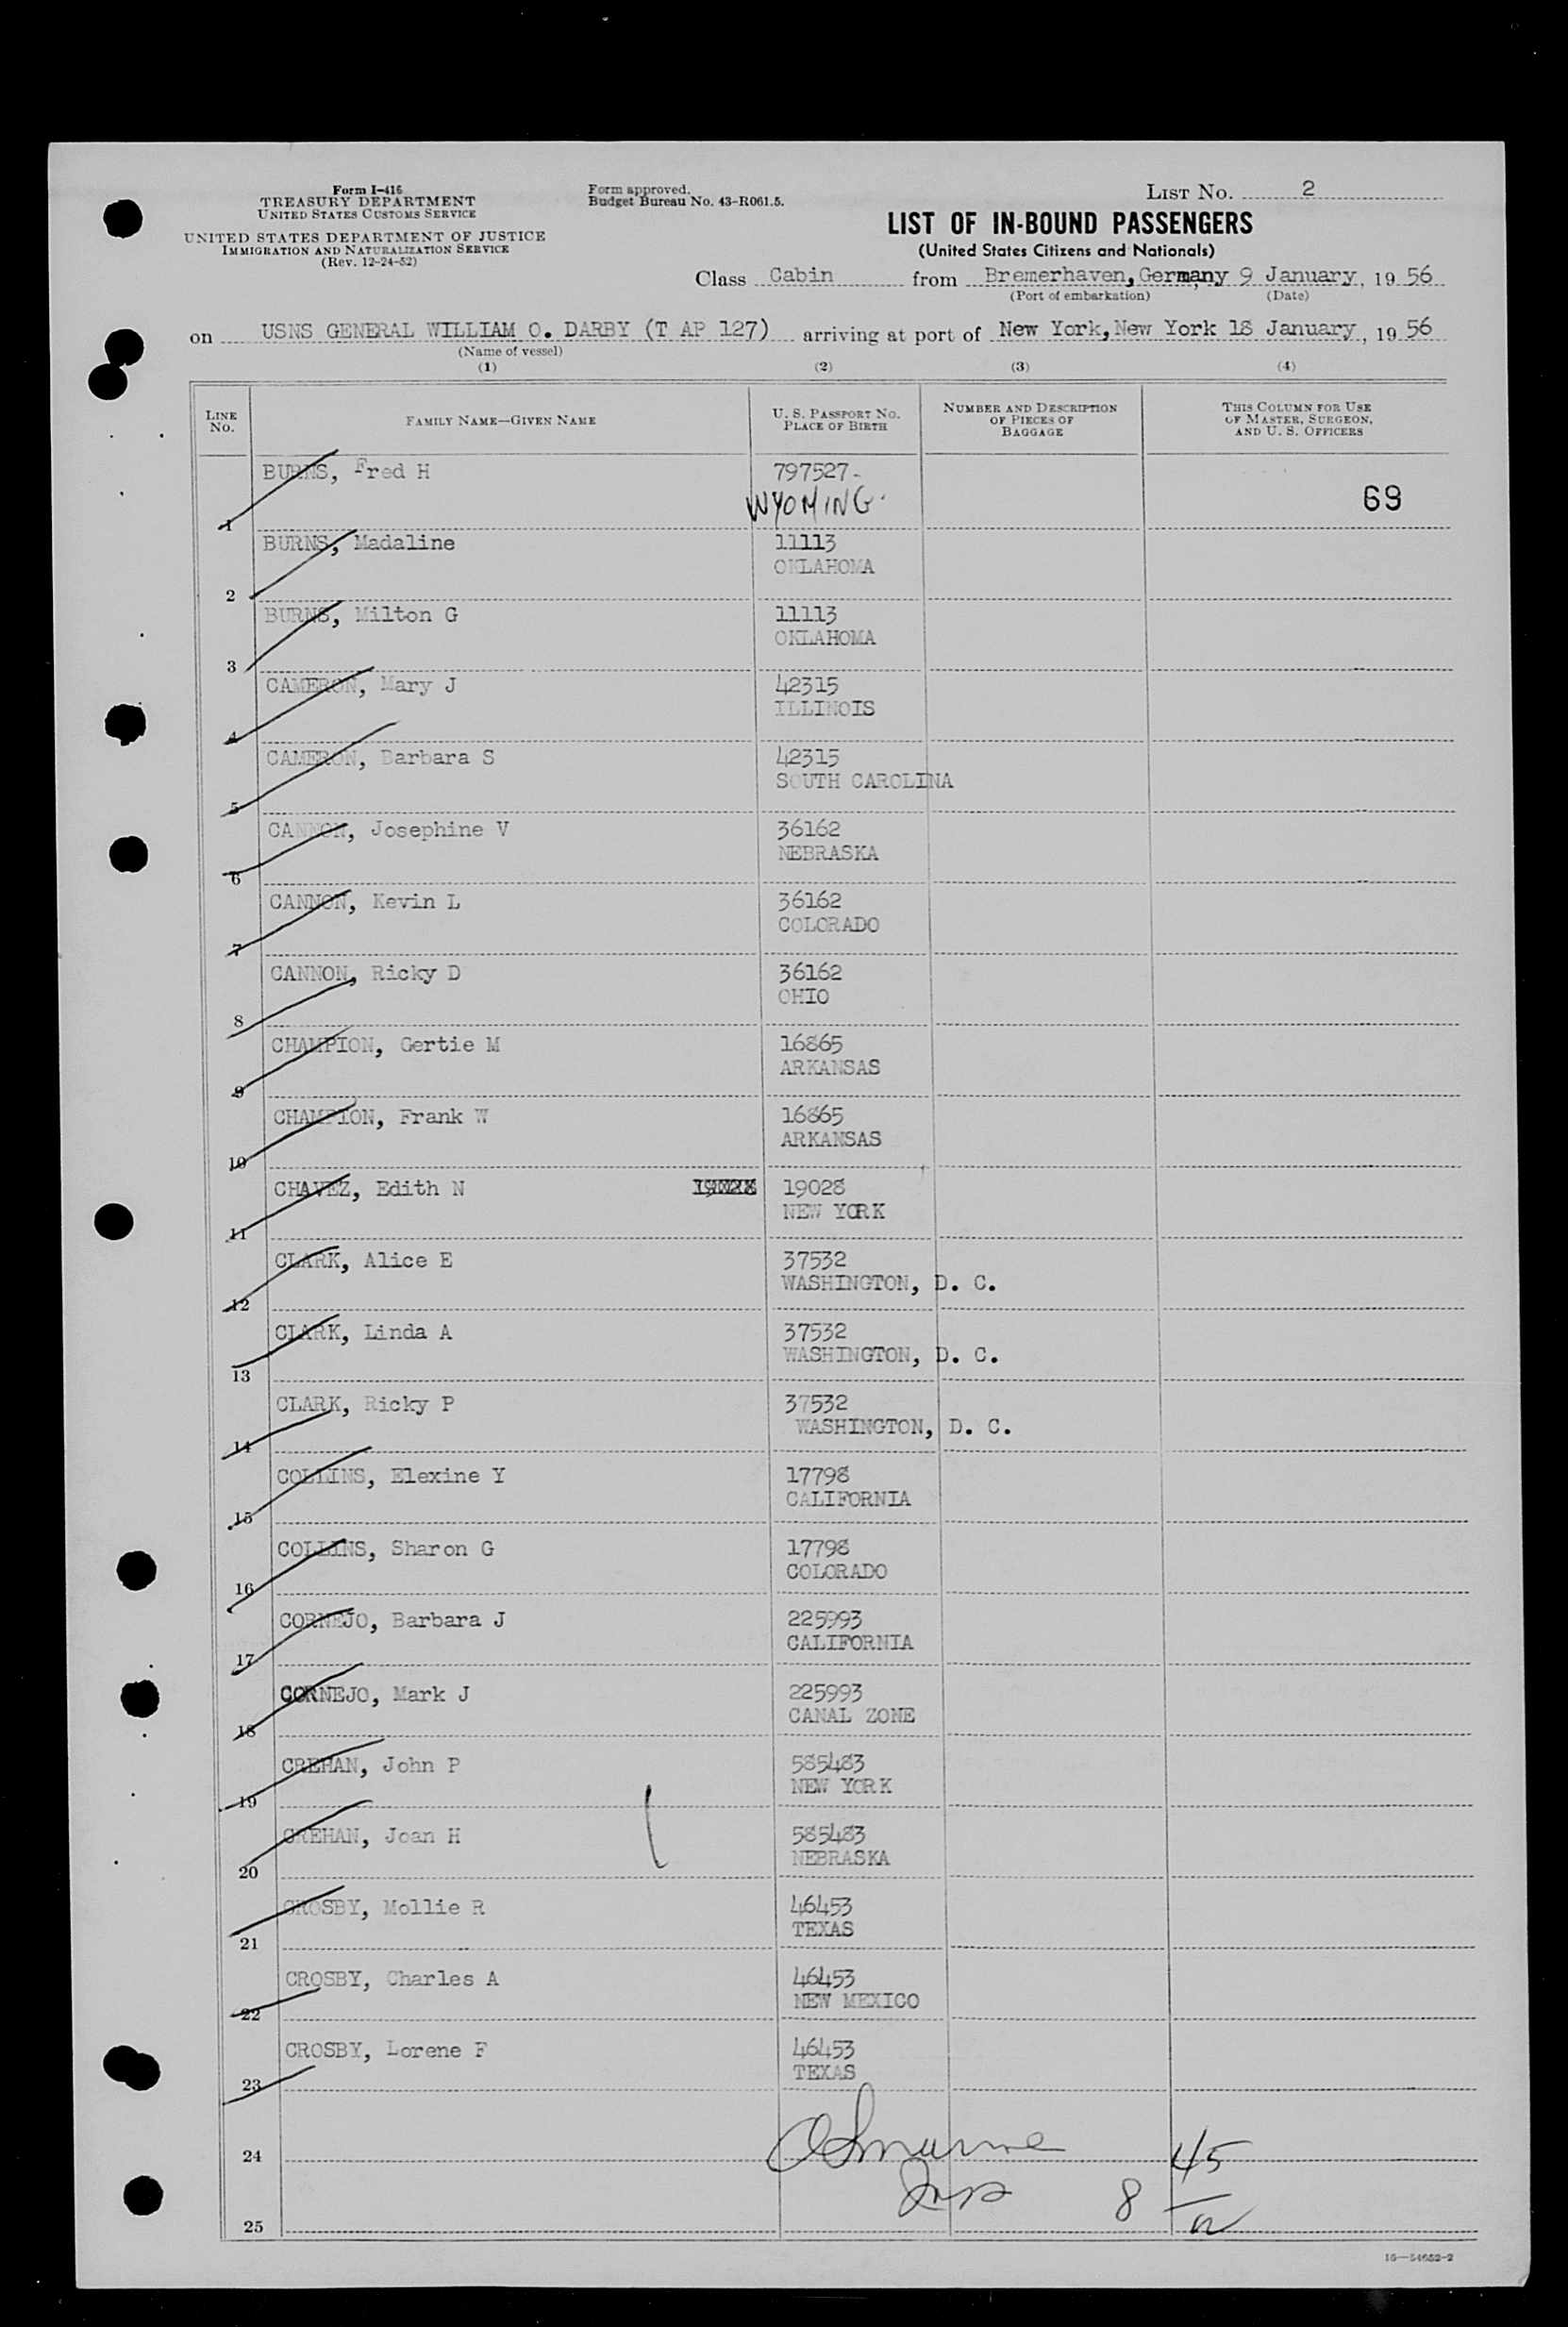 Form I-416
TREASURY DEPARTMENT
UNITED STATES CUSTOMS SERVICE
UNITED STATES DEPARTMENT OF JUSTICE
IMMIGRATION AND NATURALIZATION SERVICE
(Rev. 12-24-52)
Form approved.
Budget Bureau No. 43-R061.5.
LIST No. 2
LIST OF IN-BOUND PASSENGERS
(United States Citizens and Nationals)
Class Cabin from Bremerhaven, Germany 9 January, 19 56
(Port of embarkation) (Date)
on USNS GENERAL WILLIAM O. DARBY (T AP 127) arriving at port of New York, New York 18 January, 19 56
(Name of vessel)
(1) (2) (3) (4)
LINE No. FAMILY NAME—GIVEN NAME U. S. PASSPORT NO. PLACE OF BIRTH NUMBER AND DESCRIPTION OF PIECES OF BAGGAGE THIS COLUMN FOR USE OF MASTER, SURGEON, AND U. S. OFFICERS
BURNS, Fred H 797527-
1 WYOMING 69
BURNS, Madaline 11113
2 OKLAHOMA
BURNS, Milton G 11113
3 OKLAHOMA
CAMERON, Mary J 42315
4 ILLINOIS
CAMERON, Barbara S 42315
5 SOUTH CAROLINA
CANNON, Josephine V 36162
6 NEBRASKA
CANNON, Kevin L 36162
7 COLORADO
CANNON, Ricky D 36162
8 OHIO
CHAMPION, Gertie M 16865
9 ARKANSAS
CHAMPION, Frank W 16865
10 ARKANSAS
CHAVEZ, Edith N 19028
11 NEW YORK
CLARK, Alice E 37532
12 WASHINGTON, D. C.
CLARK, Linda A 37532
13 WASHINGTON, D. C.
CLARK, Ricky P 37532
14 WASHINGTON, D. C.
COLLINS, Elexine Y 17798
15 CALIFORNIA
COLLINS, Sharon G 17798
16 COLORADO
CORNEJO, Barbara J 225993
17 CALIFORNIA
CORNEJO, Mark J 225993
18 CANAL ZONE
CREHAN, John P 585483
19 NEW YORK
CREHAN, Joan H 585483
20 NEBRASKA
CROSBY, Mollie R 46453
21 TEXAS
CROSBY, Charles A 46453
22 NEW MEXICO
CROSBY, Lorene F 46453
23 TEXAS
24 45
25 8
16—54652-2